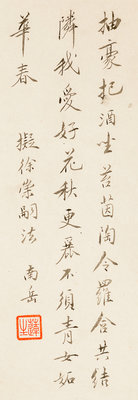 抽豪把酒坐苔茵陶令羅含共結
隣我愛好花秋更麗不須青女妬
華春
擬徐崇嗣法 南岳